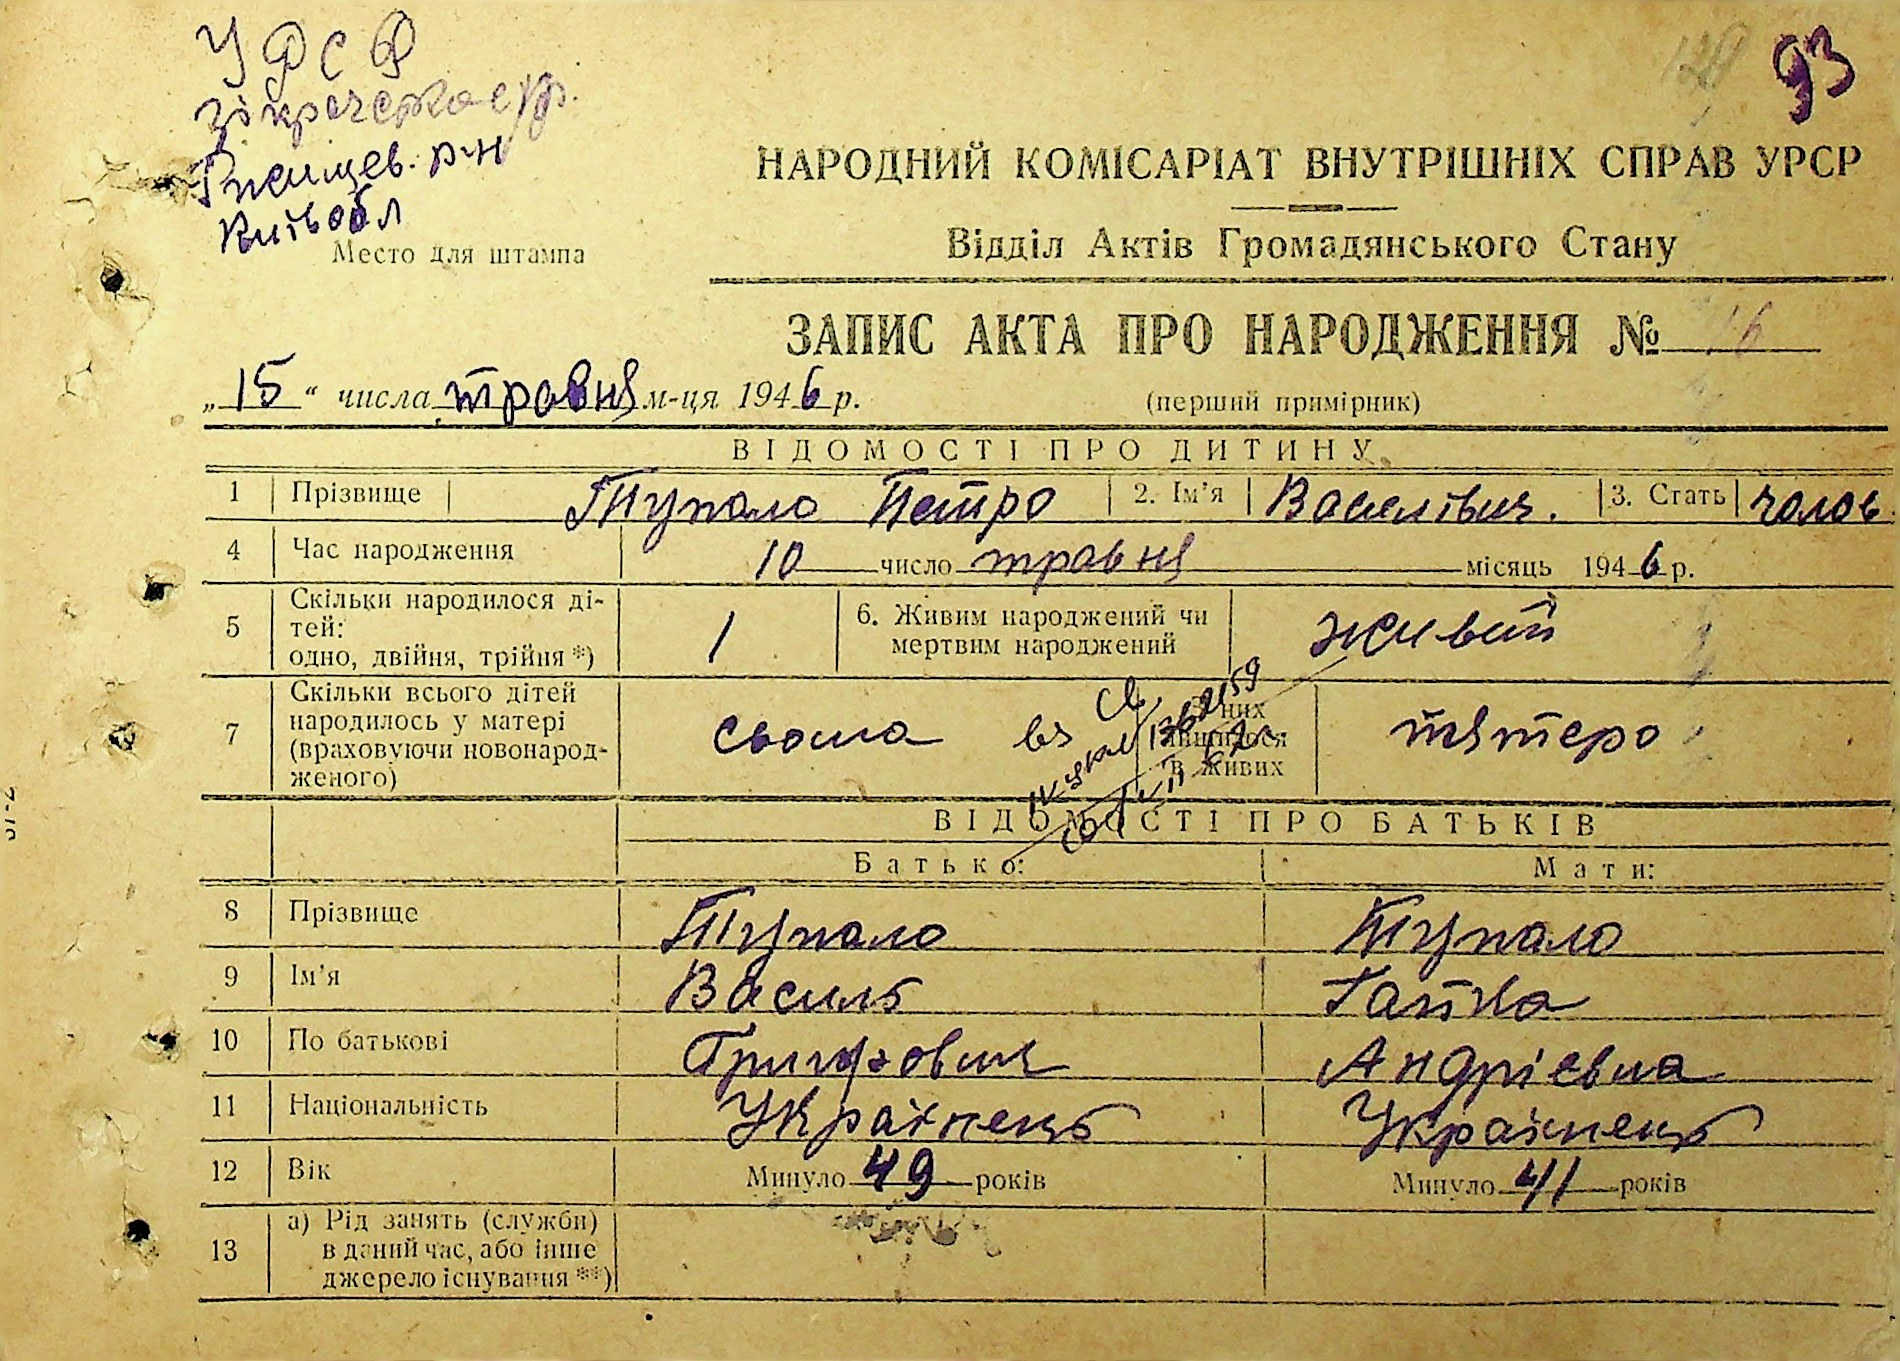 93
УРСР
Ржищев. р-н
Київ обл
Место для штампа
НАРОДНИЙ КОМІСАРІАТ ВНУТРІШНІХ СПРАВ УРСР
Відділ Актів Громадянського Стану
ЗАПИС АКТА ПРО НАРОДЖЕННЯ № 16
„15“ числа травня м-ця 1946 р.
(перший примірник)
ВІДОМОСТІ ПРО ДИТИНУ
1 Прізвище Тупало Петро 2. Ім’я Васильович. 3. Стать чолов.
4 Час народження 10 число травня місяць 1946 р.
5 Скільки народилося ді-
тей:
одно, двійня, трійня *) 1
6. Живим народжений чи
мертвим народжений живий
7 Скільки всього дітей
народилось у матері
(враховуючи новонарод-
женого) сьома
них
лишилося
в живих пятеро
ВІДОМОСТІ ПРО БАТЬКІВ
Батько: Мати:
8 Прізвище Тупало Тупало
9 Ім’я Василь Гапка
10 По батькові Григорович Андрієвна
11 Національність Українець Українець
12 Вік Минуло 49 років Минуло 41 років
13 а) Рід занять (служби)
в даний час, або інше
джерело існування **)